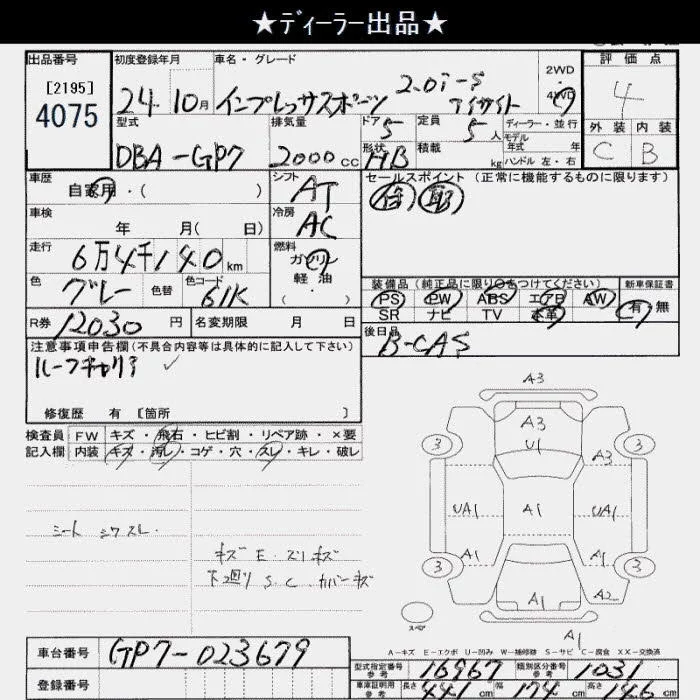 ★ディーラー出品★
出品番号
[2195]
4075
初度登録年月
24 10月
車名・グレード
インプレッサスポーツ 2.0i-S
アイサイト
2WD
・
4WD
評価点
4
外装 内装
C B
型式
DBA-GP7
排気量
2000cc
ドア 5
定員 5人
形状 HB
積載 kg
ディーラー・並行
モデル
年式 年
ハンドル 左・右
車歴
自家用・( )
シフト
AT
セールスポイント(正常に機能するものに限ります)
車検
年 月( 日)
冷房
AC
走行
6万4千140km
燃料
ガソリン
軽油
・
色
グレー
色替
色コード
61K
装備品(純正品に限り○をつけてください)
新車保証書
PS PW ABS エアB AW
有 無
SR ナビ TV 本革
R券 12030円
名変期限 月 日
後日品
B-CAS
注意事項申告欄(不具合内容等は具体的に記入して下さい)
ルーフキャリア
修復歴 有 [箇所 ]
検査員
記入欄
FW キズ・飛石・ヒビ割・リペア跡・×要
内装 キズ・汚レ・コゲ・穴・スレ・キレ・破レ
シート シワスレ.
キズ E. スリキズ
下廻り S.C. カバーキズ
A3
A3
U1
3
3
A3
UA1
A1
UA1
A1
A1
3
3
A1
A2
スペア
A1
A-キズ E-エクボ U-凹み W-補修跡 S-サビ C-腐食 XX-交換済
車台番号 GP7-023679
登録番号
型式指定番号
参考
16967
類別区分番号
参考
1031
車庫証明用
参考
長さ 441cm 幅 174cm 高さ 146cm